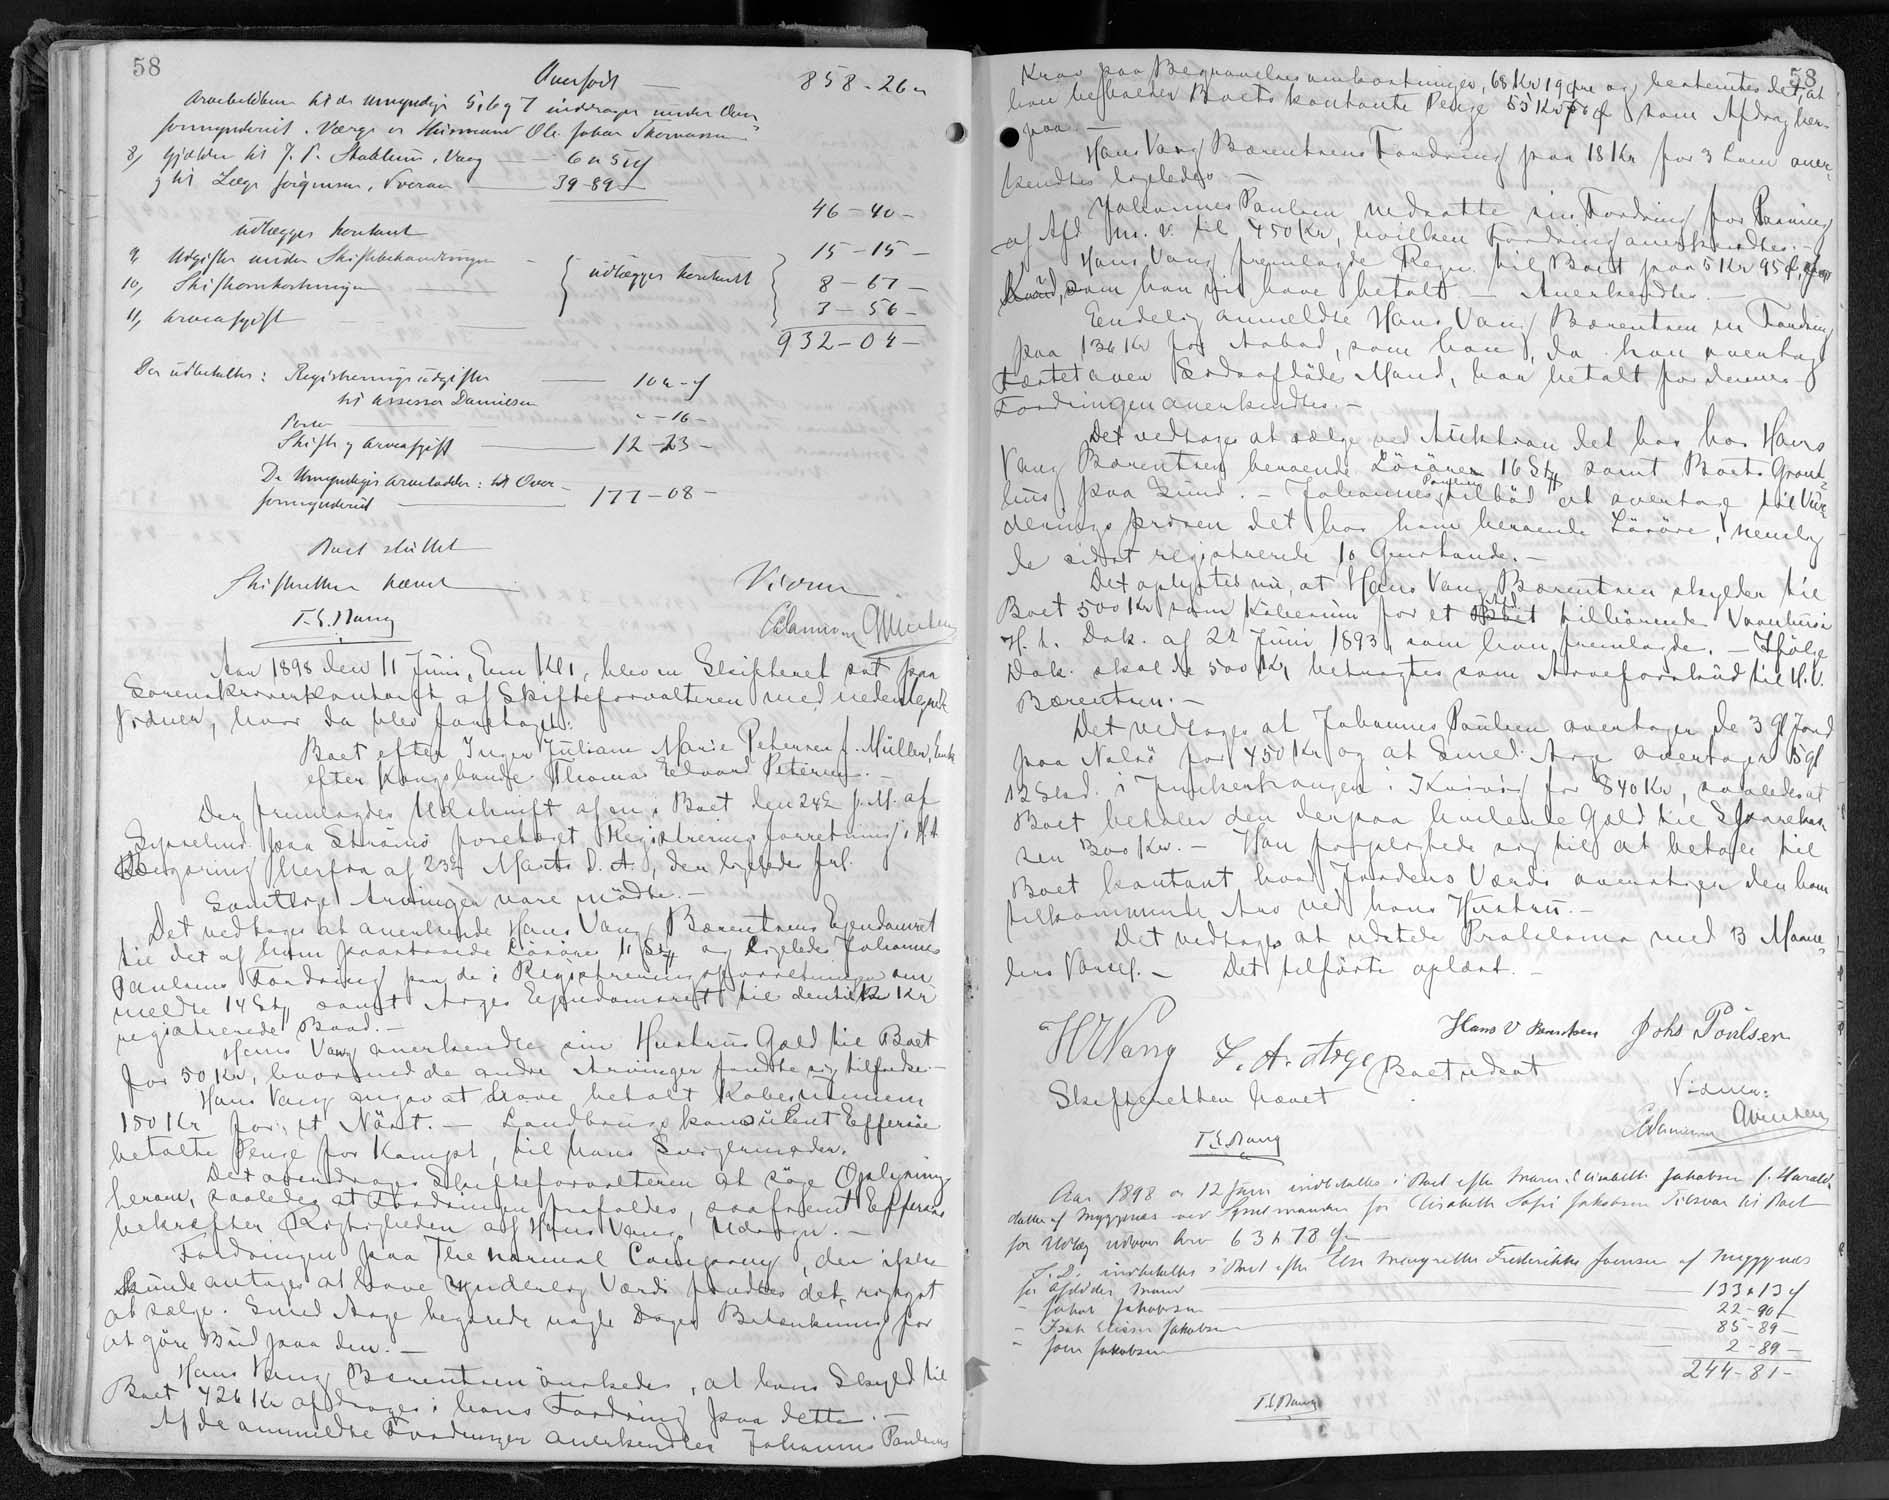 58
Overført — 858-26 "
Arvebeløbene til de umyndige 5, 6 og 7 inddrages under Over-
formynderiet. Værge er Huusmand Ole Johan Thomassen
8, Gjælden til J. P. , Vaag — 6 " 51 Ø
og til Læge Jørgensen, Tveraa — 39-89-
46-40-
udlægges kontant
9, Udgifter under Skiftebehandlingen — 15-15-
10, Skifteomkostninger — udlægges kontant 8-67-
11, Arveafgift — 3-56-
932-04-
Der udbetales: Registreringsudgifter — 10 " - Ø
til Assessor Danielsen
Porto — " - 16-
Skifte og Arveafgift — 12-23-
De Umyndiges Arvelodder: til Over-
formynderiet — 177-08-
Boet sluttet
Skifteretten hævet
Vidner
Aar 1898 den 11 Juni, Em. Kl 1, blev en Skifteret sat paa
Sorenskriverkontoret af Skifteforvalteren med nedenlgnd
Vidner, hvor da blev foretaget:
Boet efter Inger Juliane Marie Petersen f. Müller, Enke
efter Kongsbonde Thomas Edvard Petersen. —
Der fremlagdes Udskrift af en i Boet den 24de f. M. af
Sysselmd. paa Strømø foretaget Registreringsforretning i Hht
Begjæring herfra af 23de Marts d. A., der ligeledes frl.
Samtlige Arvinger vare mødte. —
Det vedtoges at anerkjende Hans Vang Bærentsens Ejendomsret
til det af ham paastaaede Løsøre 11 Stk og ligeledes Johannes
Paulsens Fordring paa de i Registreringsforretningen an-
meldte 14 Stk samt Arges Ejendomsret til den til 12 Kr
registrerede Baad. —
Hans Vang anerkendte sin Hustrus Gæld til Boet
for 50 Kr, hvormed de andre Arvinger fandt sig tilfredse. —
Hans Vang angav at have betalt Købesummen
150 Kr for et Nöst. — Landbrugskonsulent Effersøe
betalte Penge for Kampst, til hans Svigermoder.
Det overdroges Skifteforvalteren at søge Oplysning
herom, saaledes at Fordringen frafaldes, saafremt Effersøe
bekræfter Rigtigheden af Hans Vangs Udsagn. —
Fordringen paa The normal Company, der ikke
kunde antages at have synderlig Værdi fandtes det rigtigst
at sælge. Smed Arge begærede nogle Dages Betænkning for
at gøre Bud paa den. —
Hans Vang Bærentsen ønskede, at hans Skyld til
Boet 426 Kr afdrages i hans Fordring paa dette. —
Af de anmeldte Fordringer anerkendtes Johannes Paulsens
58
Krav paa Begravelsesomkostninger, 68 Kr 19 Øre og bestemtes det, at
han beholder Boets kontante Penge 55 Kr 50 Ø som Afdrag her-
paa. —
Hans Vang Bærentsens Fordring paa 18 Kr for 3 Lam aner-
kendtes ligeledes. —
Johannes Paulsen nedsatte sin Fordring for Pasning
af Afd m. v. til 450 Kr, hvilken Fordring anerkendtes. —
Hans Vang fremlagde Regn. til Boet paa 5 Kr 95 Ø,
som han vil have betalt. — Anerkendtes. —
Endelig anmeldte Hans Vang Bærentsen en Fordring
paa 136 Kr for Aabod, som han, da han overtog
Fæstet over Enkens afdøde Mand, har betalt for denne. —
Fordringen anerkendtes. —
Det vedtoges at sælge ved Auktion det hos Hans
Vang Bærentsen beroende Løsøre 16 Stk samt Boets Grønd-
hus paa Sund. — Johannes Paulsen tilbød at overtage til Vur-
deringsprisen det hos ham beroende Løsøre, nemlig
de sidst registrerede 10 Genstande. —
Det oplystes nu, at Hans Vang Bærentsen skylder til
Boet 500 Kr som Købesum for et Boet tilhørende Vaanhus i
H. t. Dok. af 22 Juni 1893, som han fremlagde. — Ifølge
Dok. skal de 500 Kr betragtes som Arveforskud til H. V.
Bærentsen. —
Det vedtoges at Johannes Paulsen overtager de 3 Gl Jord
paa Nolsø for 450 Kr og at Smed Arge overtager 5 Gl
12 Skd. i Junkerhaugen i Kvivig for 840 Kr, saaledes at
Boet betaler den derpaa hvilende Gæld til Sparekas-
sen 300 Kr. — Han forpligtede sig til at betale til
Boet kontant hvad Jordens Værdi overstiger den ham
tilkommende Arv ved hans Hustru. —
Det vedtoges at udstede Proklama med 3 Maane-
ders Varsel. — Det tilførte oplæst. —
H V Vang J. A. Arge Hans V Bærentsen Johs Poulsen
Boet udsat
Skifteretten hævet
Vidner:
Aar 1898 den 12 Juni indbetaltes i Boet efter Maren Elisabeth Jakobsen f. Haralds-
datter af Myggenæs ved Amtmanden for Elisabeth Sofie Jakobsen Tilsvar til Boet
for Udlæg udover Arv 63 " 78 Ø —
S. D. indbetaltes i Boet efter Else Margrethe Frederikke Joensen af Myggenæs
for afdødes Mand — 133 " 13 Ø
- Jakob Jakobsen — 22-90-
- Isak Jakobsen — 85-89-
- Joen Jakobsen — 2-89-
244-81-